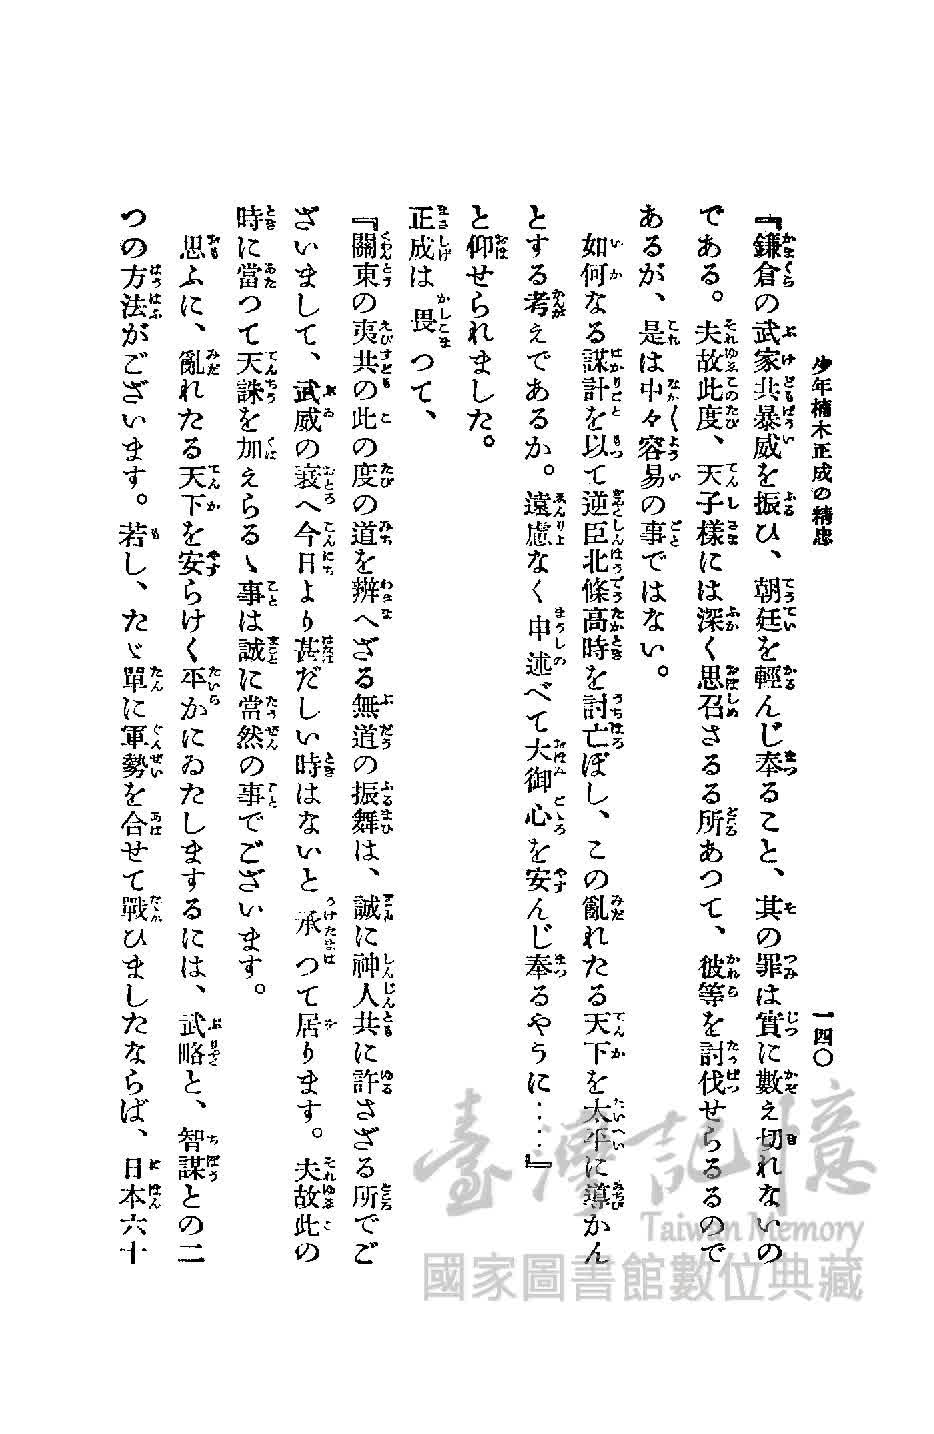 少年楠木正成の精忠
一四〇
『鎌倉の武家共暴威を振ひ、朝廷を輕んじ奉ること、其の罪は實に數え切れないの
である。夫故此度、天子樣には深く思召さるる所あつて、彼等を討伐せらるるので
あるが、是は中々容易の事ではない。
如何なる謀計を以て逆臣北條高時を討亡ぼし、この亂れたる天下を太平に導かん
とする考えであるか。遠慮なく申述べて大御心を安んじ奉るやうに‥‥』
と仰せられました。
正成は畏つて、
『關東の夷共の此の度の道を辨へざる無道の振舞は、誠に神人共に許さざる所でご
ざいまして、武威の衰へ今日より甚だしい時はないと承つて居ります。夫故此の
時に當つて天誅を加えらるゝ事は誠に當然の事でございます。
思ふに、亂れたる天下を安らけく平かにゐたしまするには、武略と、智謀との二
つの方法がございます。若し、たゞ單に軍勢を合せて戰ひましたならば、日本六十
臺灣記憶
Taiwan Memory
國家圖書館數位典藏